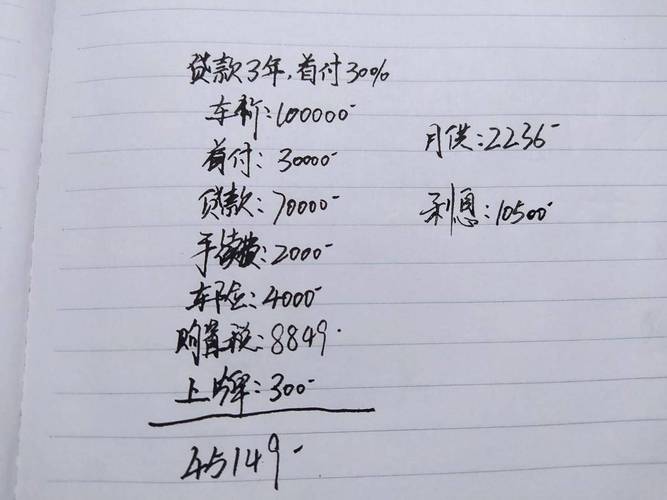 贷款3年,首付30%
车价:100000-
首付:30000-
贷款:70000-
手续费:2000-
车险:4000-
购置税:8849.
上牌:300-
45149-
月供:2236-
利息:10500-